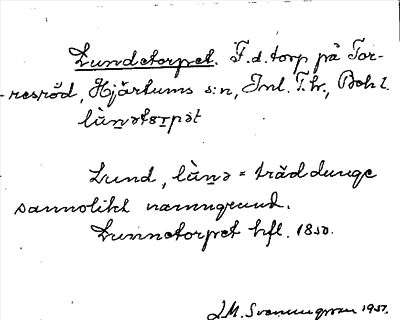 Lundetorpet. F.d. torp på Tor-
-resröd, Hjärtums s:n, Inl. T. hr., Bohl.
lùn̲ətɷr̲pət
Lund, lùn̲ə = träddunge
sannolikt namngrund.
Lunnetorpet hfl. 1850.
J.M. Svenungsson 1937.